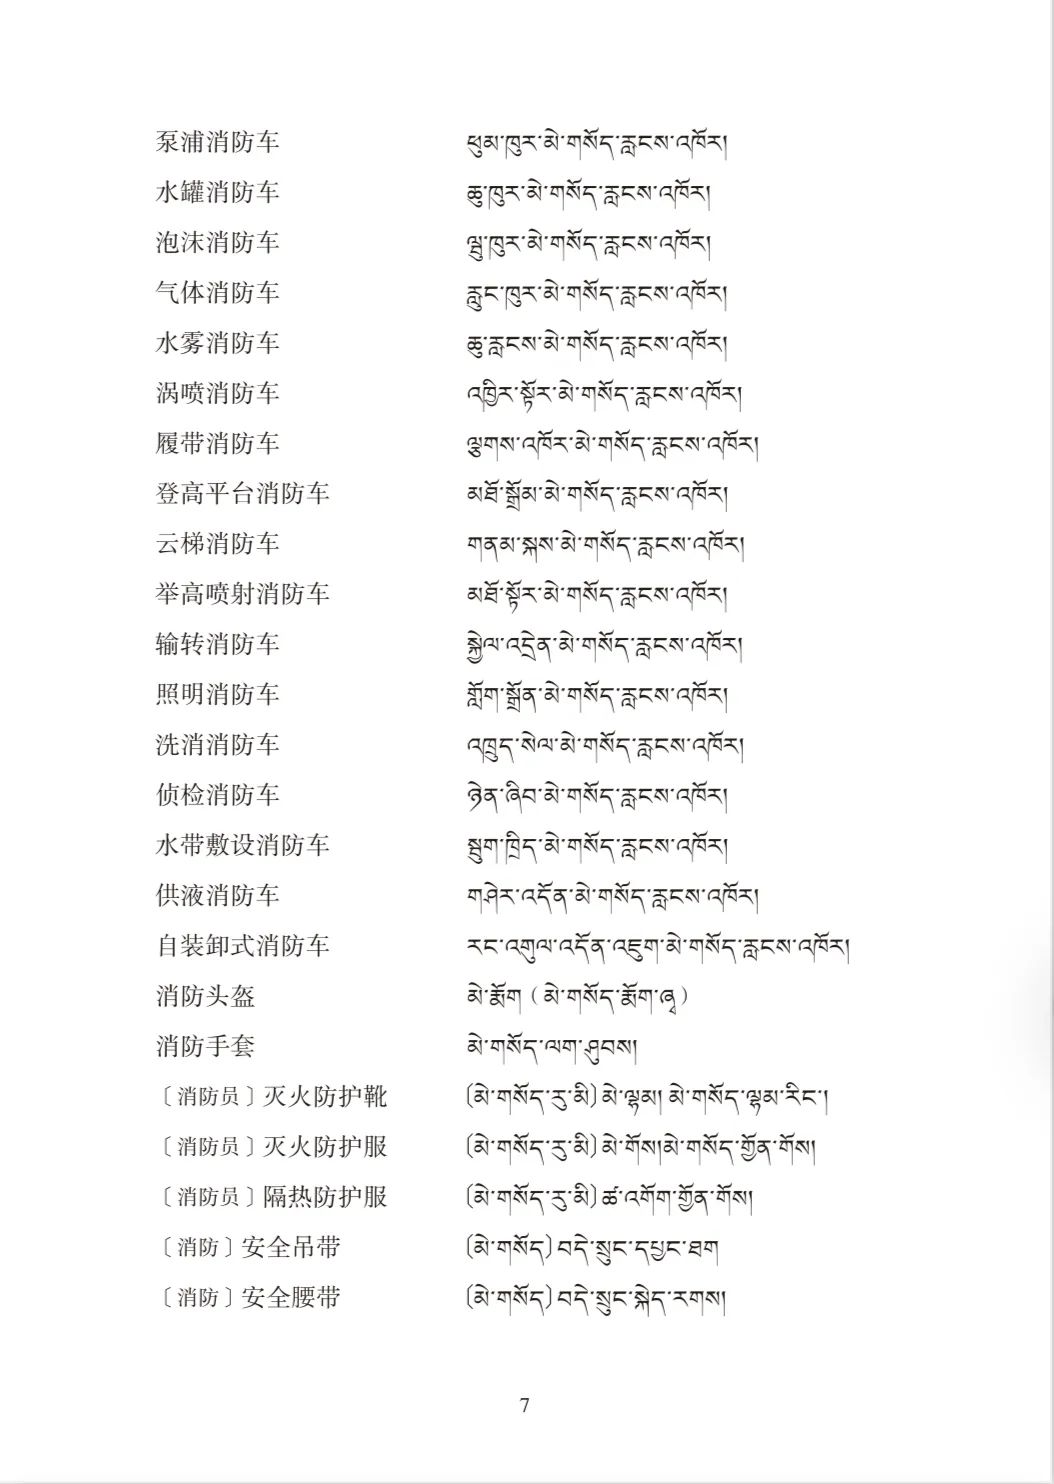 泵浦消防车 ཕུམ་ཁུར་མེ་གསོད་རླངས་འཁོར།
水罐消防车 ཆུ་ཁུར་མེ་གསོད་རླངས་འཁོར།
泡沫消防车 ལྦུ་ཁུར་མེ་གསོད་རླངས་འཁོར།
气体消防车 རླུང་ཁུར་མེ་གསོད་རླངས་འཁོར།
水雾消防车 ཆུ་རླངས་མེ་གསོད་རླངས་འཁོར།
涡喷消防车 འཁྱིར་སྟོར་མེ་གསོད་རླངས་འཁོར།
履带消防车 ལྕགས་འཁོར་མེ་གསོད་རླངས་འཁོར།
登高平台消防车 མཐོ་སྒྲོམ་མེ་གསོད་རླངས་འཁོར།
云梯消防车 གནམ་སྐས་མེ་གསོད་རླངས་འཁོར།
举高喷射消防车 མཐོ་སྟོར་མེ་གསོད་རླངས་འཁོར།
输转消防车 སྐྱེལ་འདྲེན་མེ་གསོད་རླངས་འཁོར།
照明消防车 གློག་སྒྲོན་མེ་གསོད་རླངས་འཁོར།
洗消消防车 འཁྲུད་སེལ་མེ་གསོད་རླངས་འཁོར།
侦检消防车 ཉེན་ཞིབ་མེ་གསོད་རླངས་འཁོར།
水带敷设消防车 སྦུག་ཁྲིད་མེ་གསོད་རླངས་འཁོར།
供液消防车 གཤེར་འདོན་མེ་གསོད་རླངས་འཁོར།
自装卸式消防车 རང་འགུལ་འདོན་འཇུག་མེ་གསོད་རླངས་འཁོར།
消防头盔 མེ་རྨོག（མེ་གསོད་རྨོག་ཞྭ）
消防手套 མེ་གསོད་ལག་ཤུབས།
〔消防员〕灭火防护靴 (མེ་གསོད་རུ་མི)མེ་ལྷམ། མེ་གསོད་ལྷམ་རིང་།
〔消防员〕灭火防护服 (མེ་གསོད་རུ་མི)མེ་གོས།མེ་གསོད་གྱོན་གོས།
〔消防员〕隔热防护服 (མེ་གསོད་རུ་མི)ཚ་འགོག་གྱོན་གོས།
〔消防〕安全吊带 (མེ་གསོད)བདེ་སྲུང་དཔྱང་ཐག
〔消防〕安全腰带 (མེ་གསོད)བདེ་སྲུང་སྐེད་རགས།
7